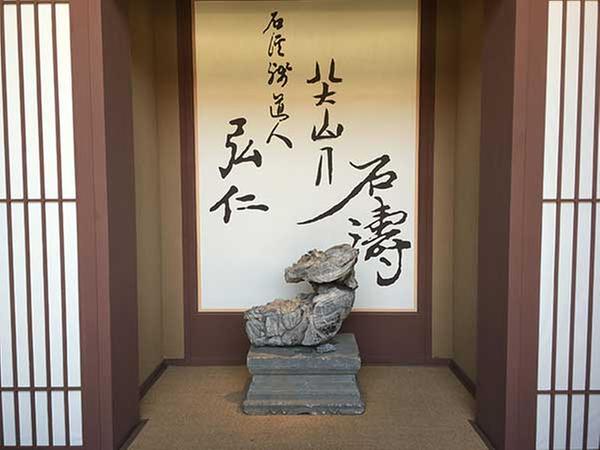 石濤
八大山人
石溪殘道人
弘仁